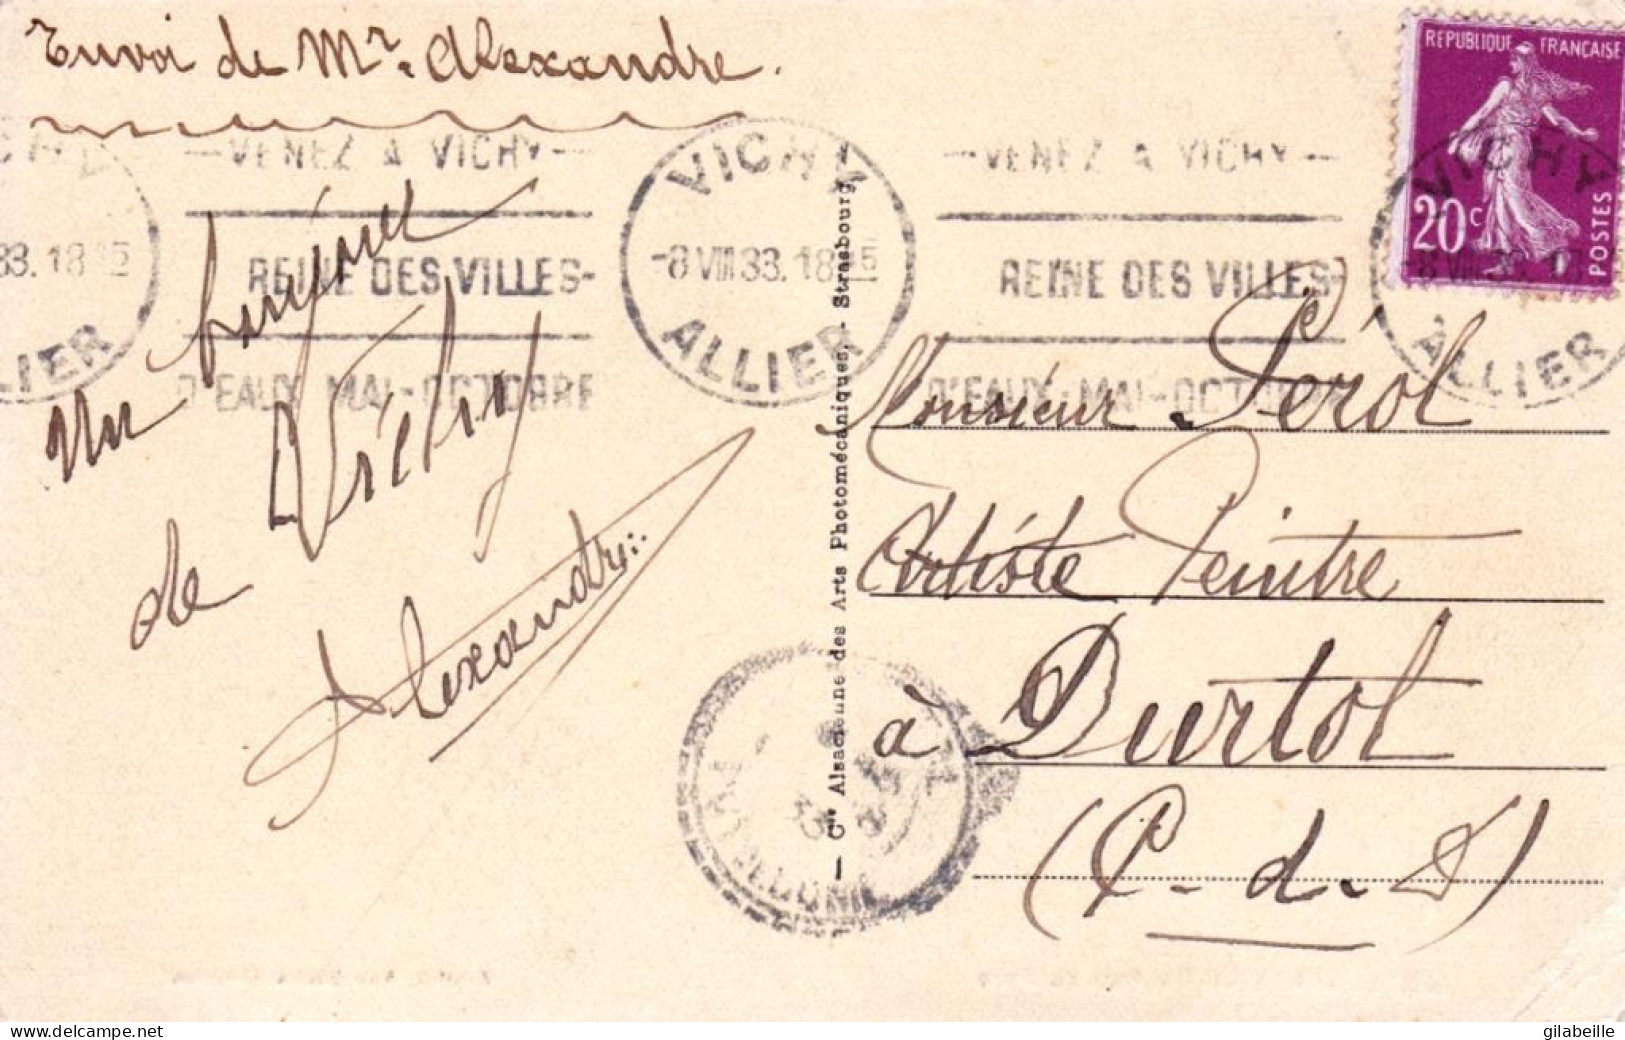 Envoi de Mr. Alexandre.
REPUBLIQUE FRANÇAISE
20c
POSTES
— VENEZ A VICHY —
REINE DES VILLES-
D'EAUX MAI-OCTOBRE
VICHY
-8 VIII 33. 18 15
ALLIER
— VENEZ A VICHY —
REINE DES VILLES-
D'EAUX MAI-OCTOBRE
VICHY
ALLIER
33. 18 15
LIER
Un bonjour
de Vichy
Alexandre
Monsieur Pérol
Artiste Peintre
à Durtol
(P-d-D)
— Cie Alsacienne des Arts Photomécaniques, - Strasbourg
www.delcampe.net
gilabeille